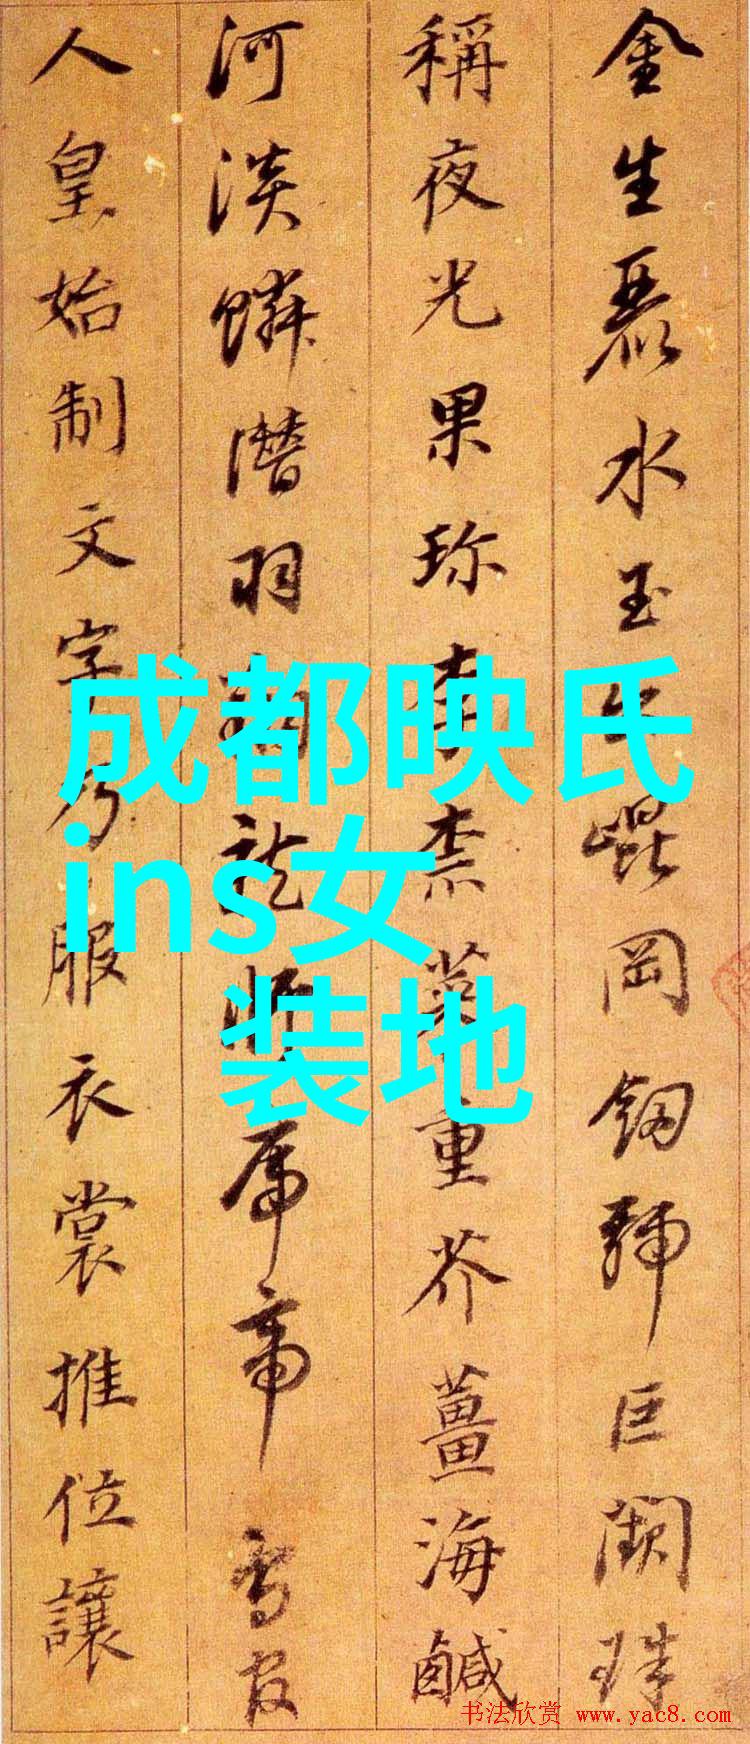 金生麗水玉出崐岡劔號巨闕珠
稱夜光果珍李柰菜重芥薑海鹹
河淡鱗潛羽翔龍師火帝鳥官
人皇始制文字乃服衣裳推位讓
成都映氏
ins女
装地
书法欣赏 www.yac8.com